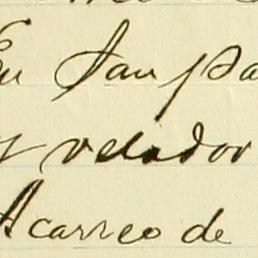 En San Pa
y velador
Acarreo de